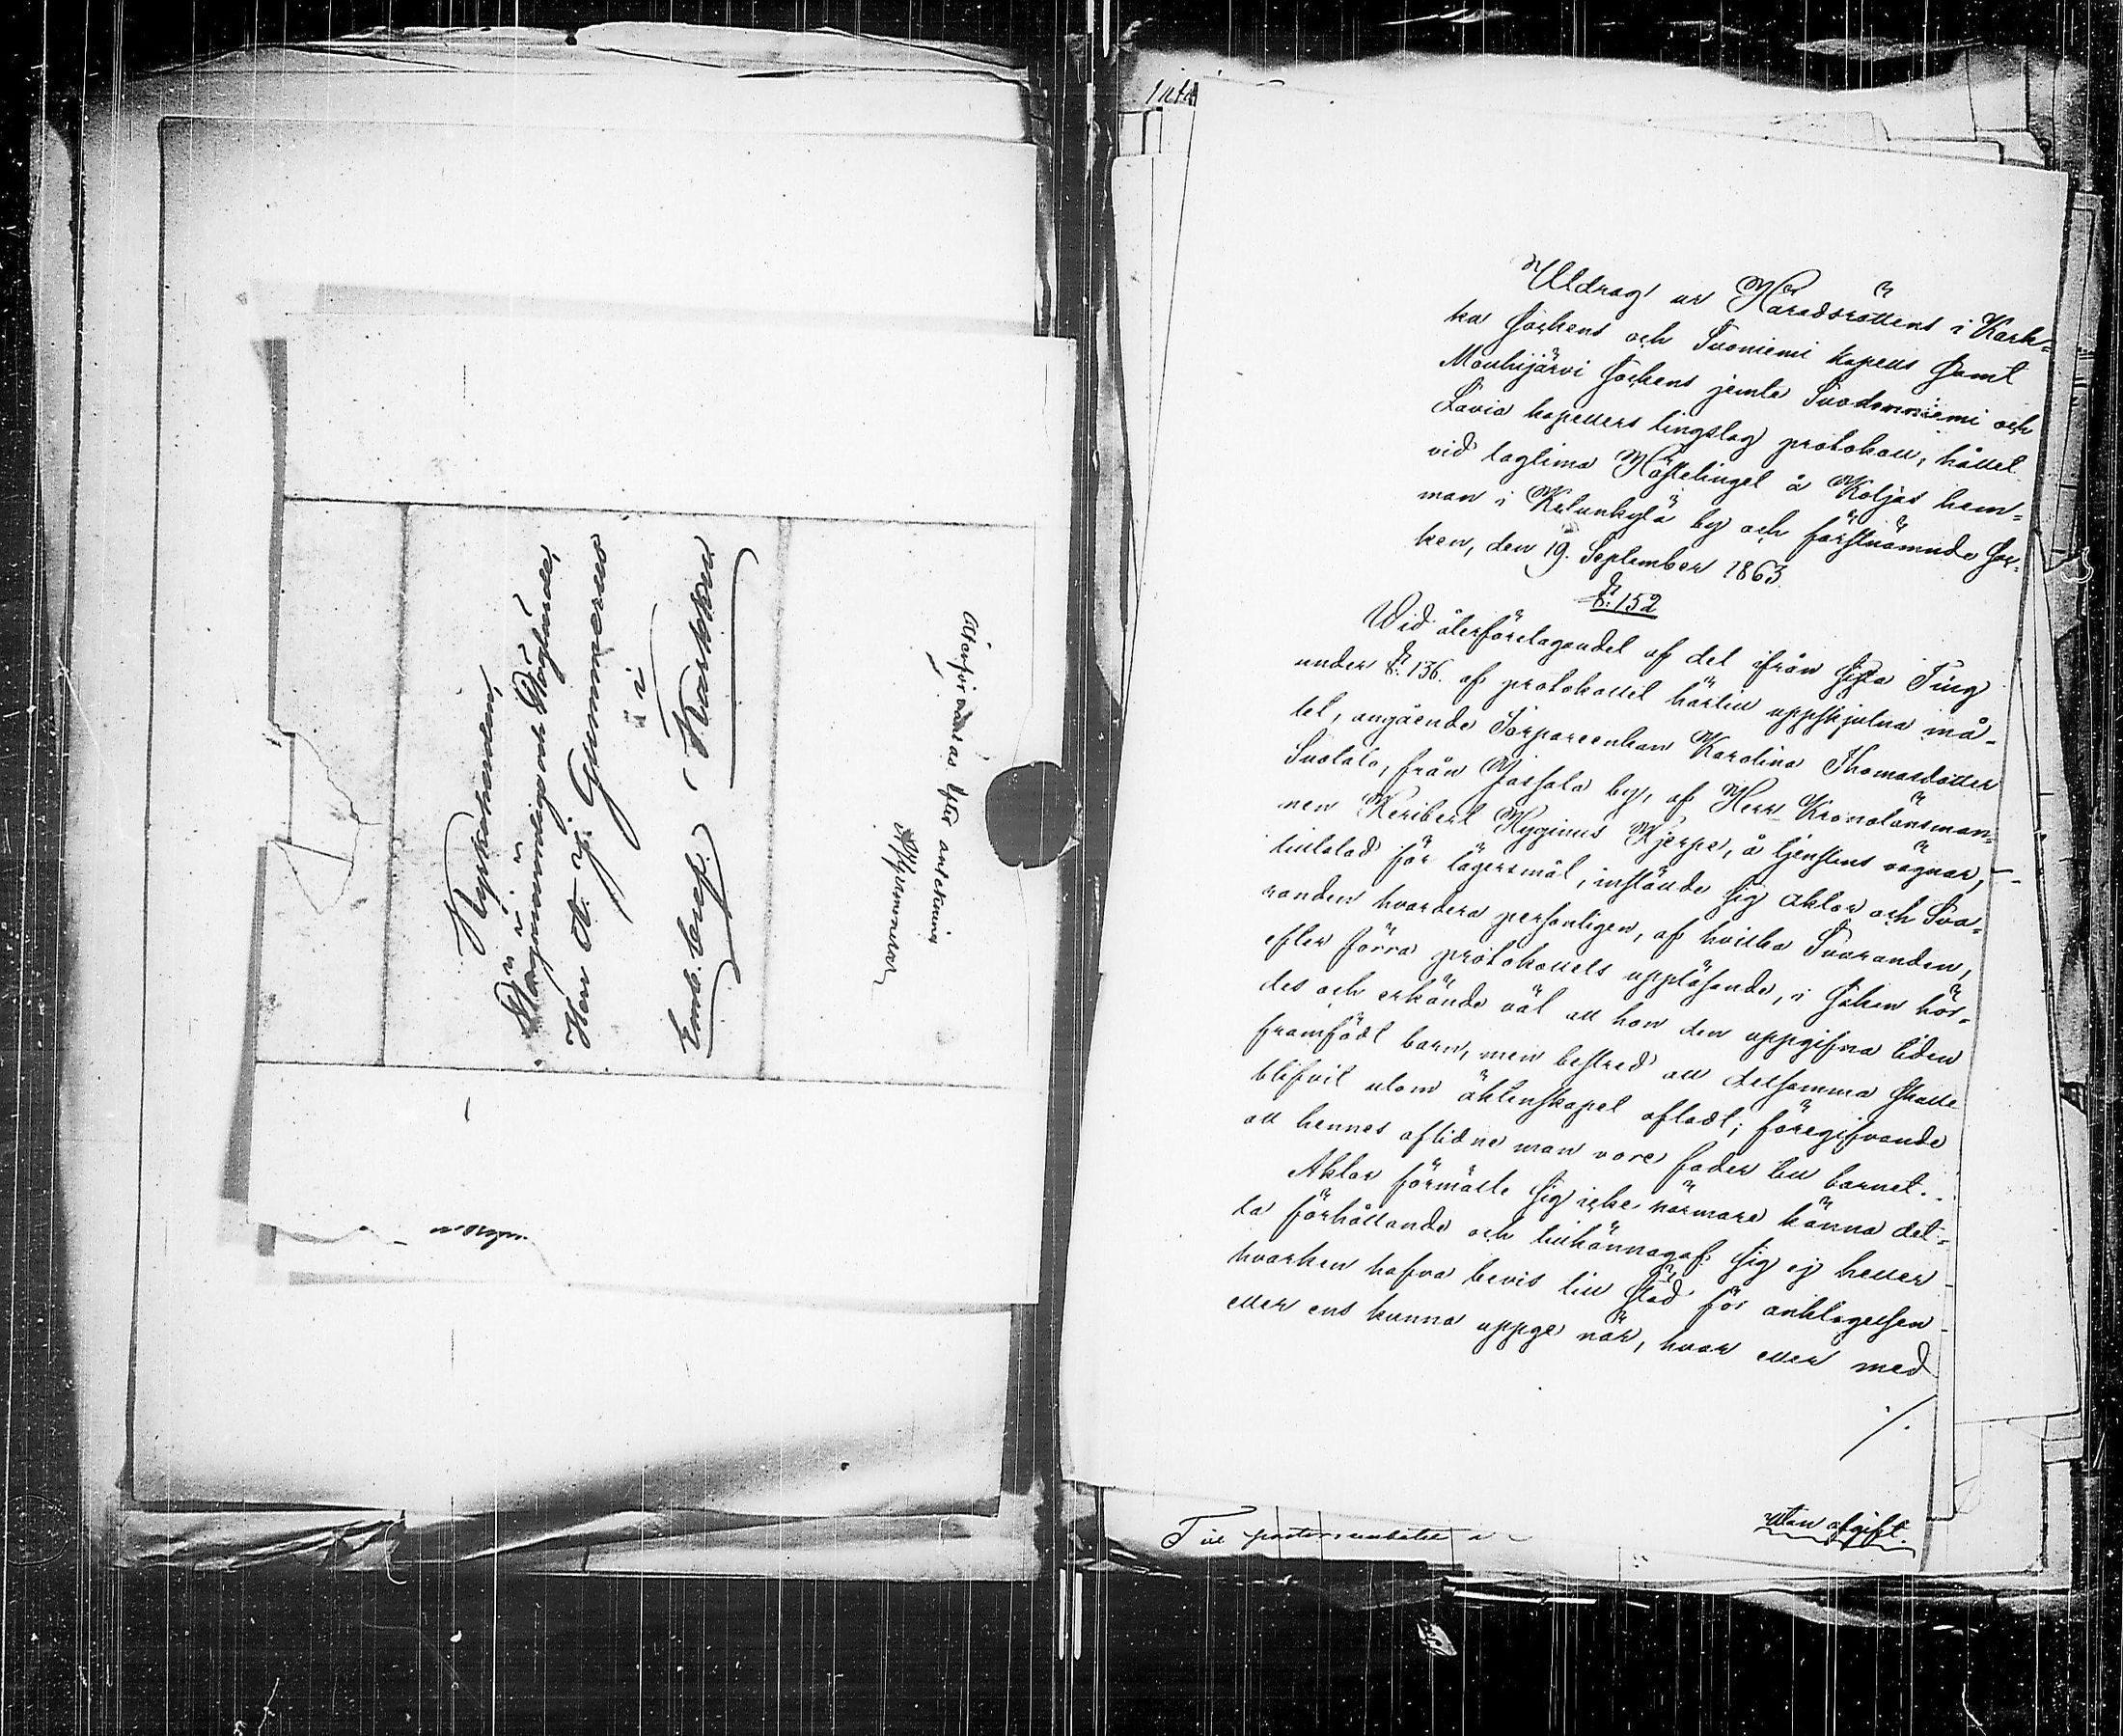 Kyrkoherden,
Högvördige och Höglärde,
Herr A. F. Gummerus
i
Karkku
Emb. bref.
Återförvaras efter anteckning
Utdrag ur Häradsrättens i Kark-
ku Socken och Suoniemi kapell Samt
Mouhijärvi Socken jemte Suodenniemi och
Lavia kapellers tingslag protokoll, hållet
vid lagtima Höstetinget å Koljas hem-
man i Kulunkylä by och förstnämnde Soc-
ken, den 19. September 1863.
§. 152
Wid återföretagandet af det ifrån sista Ting
under §. 136. af protokollet härtill uppskjutna må-
let, angående Torpareenkan Karolina Thomasdotter
Suotala, från Jassala by, af Herr Kronolänsman-
nen Heribert Hyginus Hjerpe, å tjenstens vägnar,
tilltalad för lägersmål, instälde sig Aktor och Sva-
randen hvardera personligen, af hvilka Svaranden,
efter förra protokollets uppläsande, i saken hör-
des och erkände väl att hon den uppgifna tiden
framfödt barn, men bestred att detsamma skulle
blifvit utom äktenskapet afladt; föregifvande
att hennes aflidne man vore fader till barnet.
Aktor förmälte sig icke närmare känna det-
ta förhållande och tillkännagaf sig ej heller
hvarken hafva bevis till stöd för anklagelsen
eller ens kunna uppge när, hvar eller med
./.
Till pastorsembetet i
utan afgift.